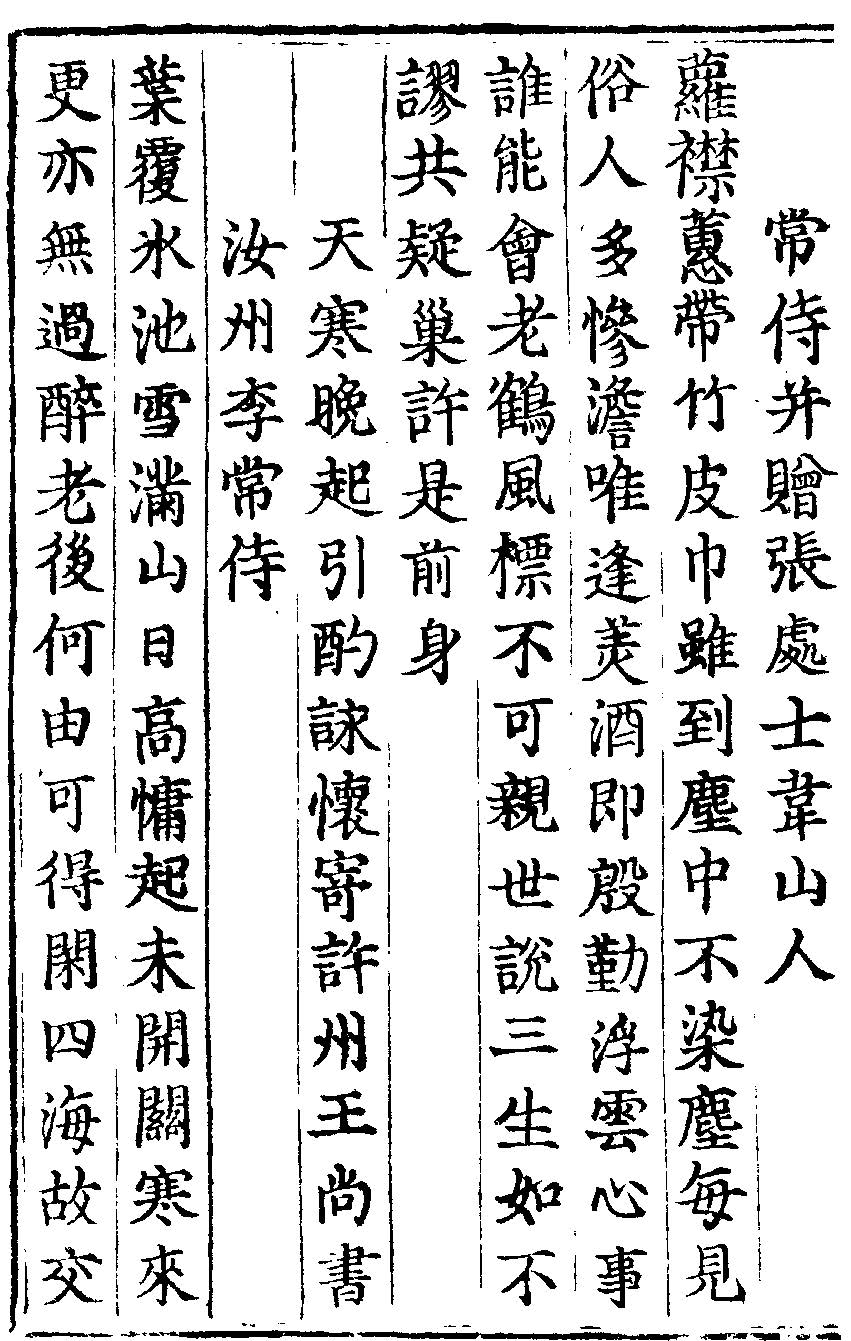 常侍并贈張處士韋山人
蘿襟蕙帶竹皮巾雖到塵中不染塵每見
俗人多慘澹唯逢羙酒即殷勤浮雲心事
誰能會老鶴風標不可親世說三生如不
謬共疑巢許是前身
天寒晚起引酌詠懷寄許州王尚書
汝州李常侍
葉覆氷池雪滿山日高慵起未開關寒來
更亦無過醉老後何由可得閑四海故交